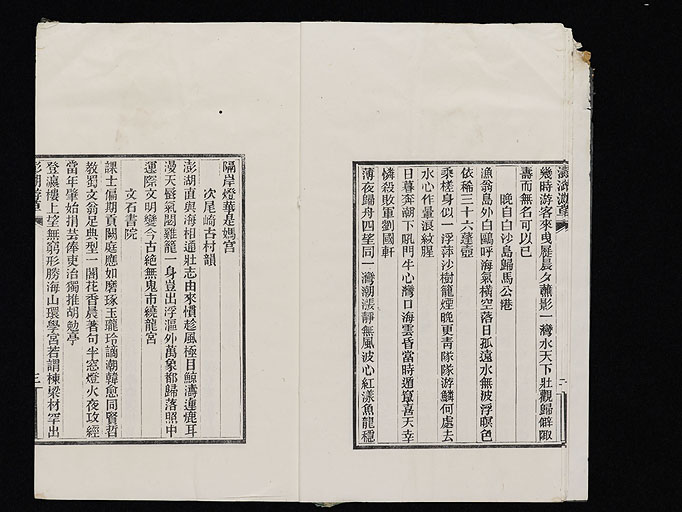 幾時游客來曳屐晨夕蕭影一灣水天下壯觀歸僻陬
壽而無名可以已
晚自白沙島歸馬公港
漁翁島外白鷗呼海氣橫空落日孤遠水無波浮暝色
依稀三十六蓬壺
乘槎身似一浮萍沙樹籠煙晚更青隊隊游鱗何處去
水心作暈浪紋腥
日暮奔潮下吼門牛心灣口海雲昏當時遁竄喜天幸
憐殺敗軍劉國軒
薄夜歸舟四望同一灣潮漲靜無風波心紅漾魚龍穩
二
隔岸燈華是媽宮
次尾崎古村韻
澎湖直與海相通壯志由來慣趁風極目鯨濤連鹿耳
漫天蜃氣閟雞籠一身豈出浮漚外萬象都歸落照中
運際文明變今古絕無鬼市繞龍宮
文石書院
課士偏期貢闕庭應如磨琢玉瓏玲謫朝韓愈同賢哲
教蜀文翁足典型一闌花香晨著句半窓燈火夜攻經
當年肇始捐芸俸吏治獨推胡勉亭
登瀛樓上望無窮形勝海山環學宮若謂棟梁材罕出
澎湖游草
三